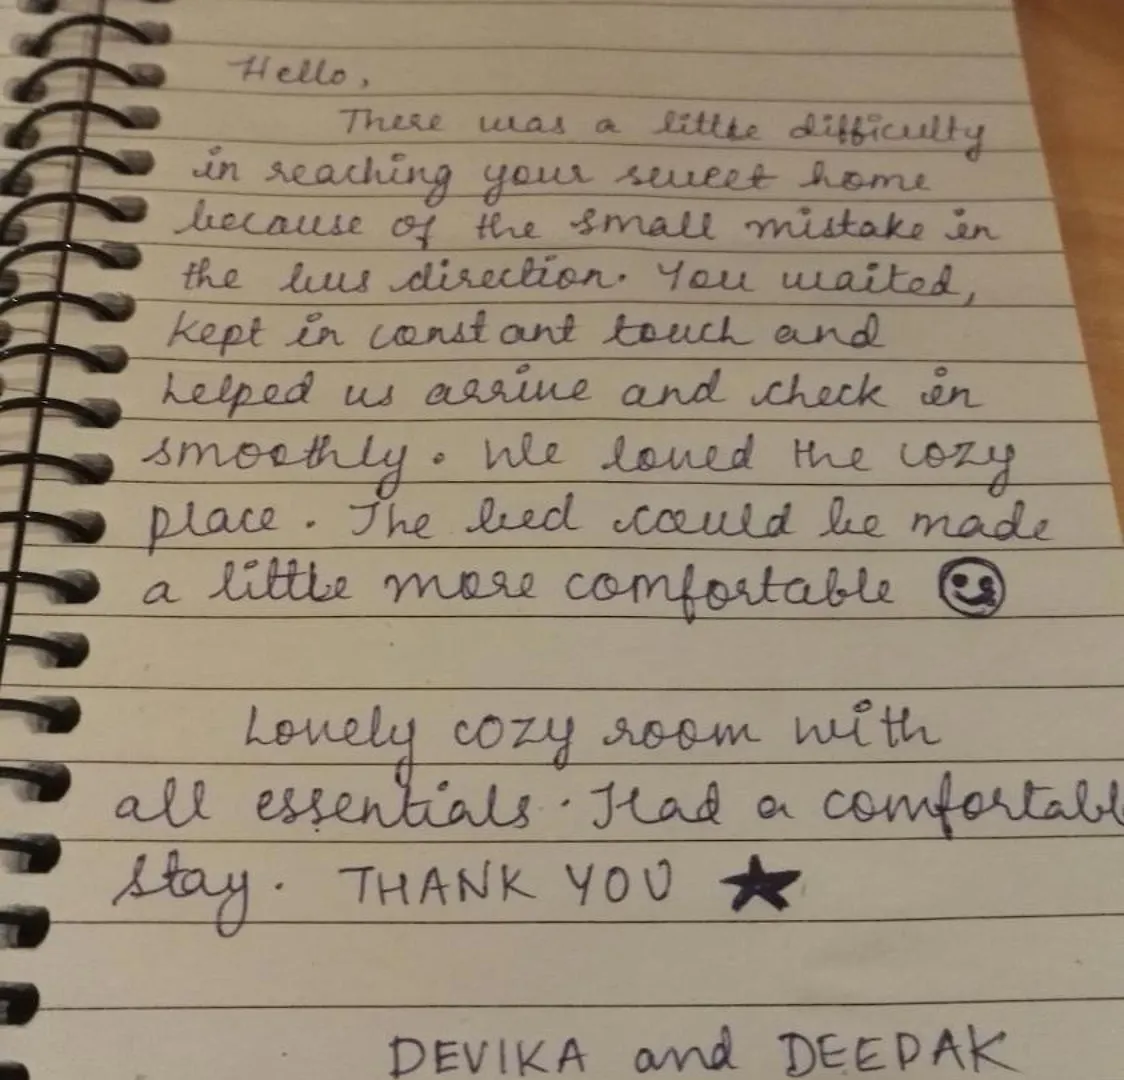 Hello,
There was a little difficulty
in reaching your sweet home
because of the small mistake in
the bus direction. You waited,
kept in constant touch and
helped us arrive and check in
smoothly. We loved the cozy
place. The bed could be made
a little more comfortable
Lovely cozy room with
all essentials. Had a comfortabl
stay. THANK YOU
DEVIKA and DEEPAK